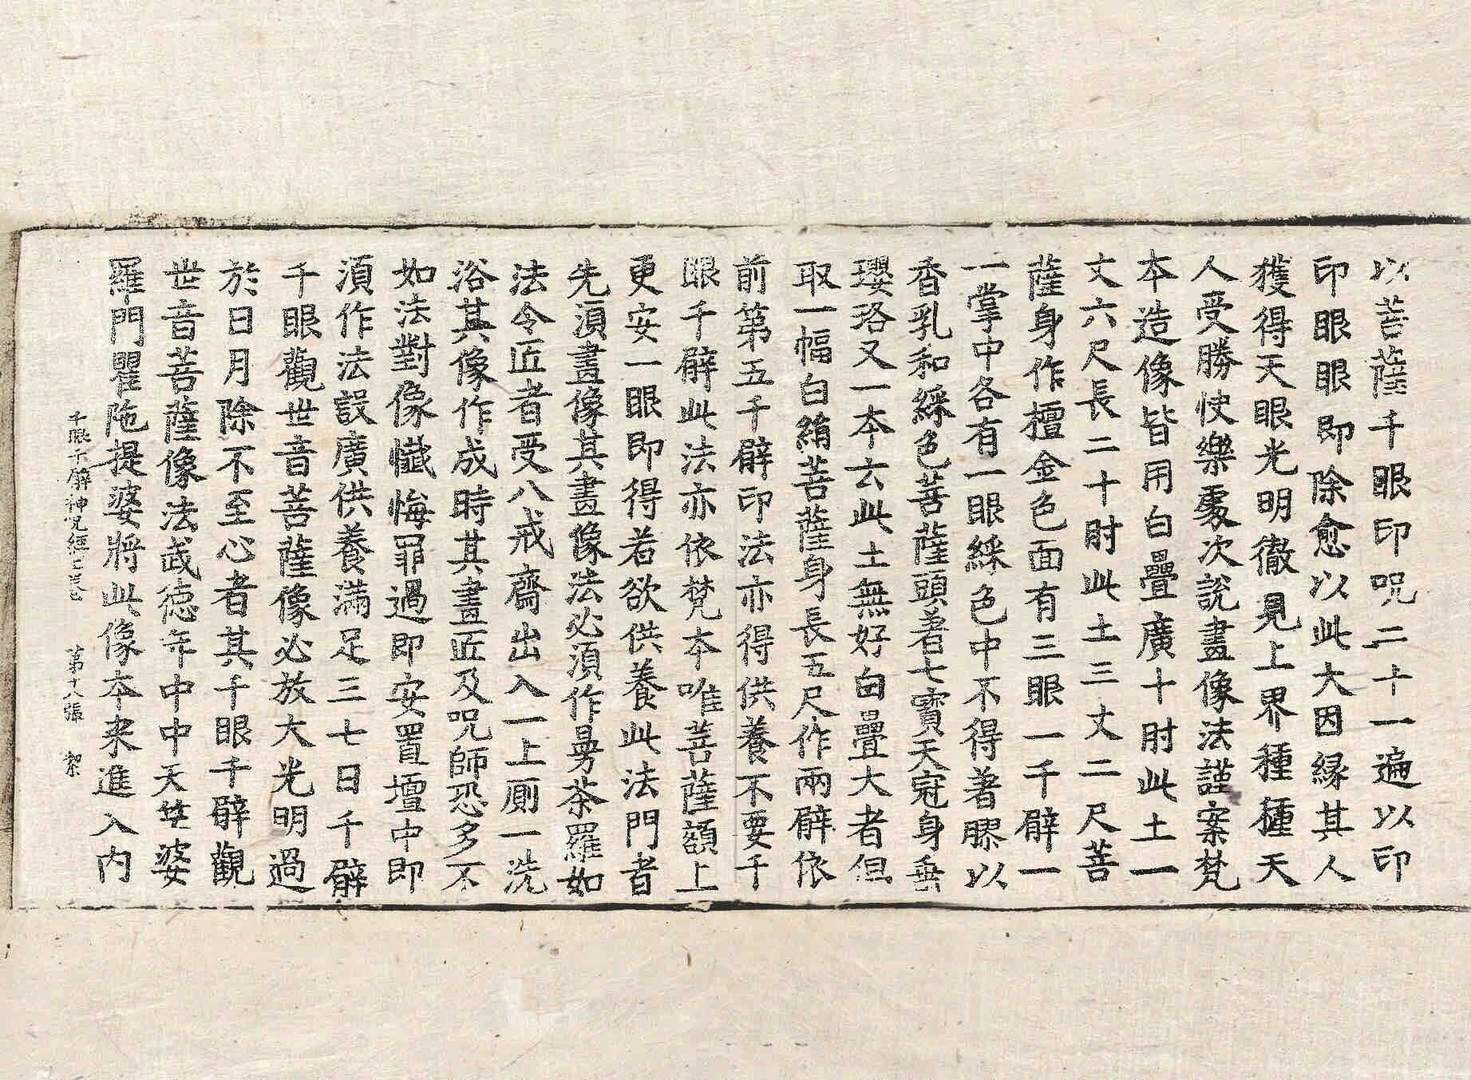 以菩薩千眼印呪二十一遍以印
印眼眼即除愈以此大因緣其人
獲得天眼光明徹見上界種種天
人受勝快樂䖏次說畫像法謹案梵
本造像皆用白疊廣十肘此土一
丈六尺長二十肘此土三丈二尺菩
薩身作檀金色面有三眼一千臂一
一掌中各有一眼綵色中不得著膠以
香乳和綵色菩薩頭著七寶天冠身垂
瓔珞又一本云此土無好白疊大者但
取一幅白絹菩薩身長五尺作兩臂依
前第五千臂印法亦得供養不要千
眼千臂此法亦依梵本唯菩薩額上
更安一眼即得若欲供養此法門者
先湏畫像其畫像法必湏作曼荼羅如
法令匠者受八戒齋出入一上厠一洗
浴其像作成時其畫匠及呪師恐多不
如法對像懺悔罪過即安置壇中即
湏作法設廣供養滿足三七日千臂
千眼觀世音菩薩像必放大光明過
於日月除不至心者其千眼千臂觀
世音菩薩像法武德年中中天竺婆
羅門瞿陁提婆將此像本来進入内
千眼千臂神呪經上卷 第十八張 絜